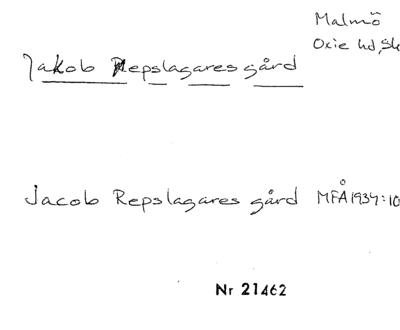 Malmö
Oxie hd, Sk
Jakob Repslagares gård
Jacob Repslagares gård MFÅ 1934:10
Nr 21462